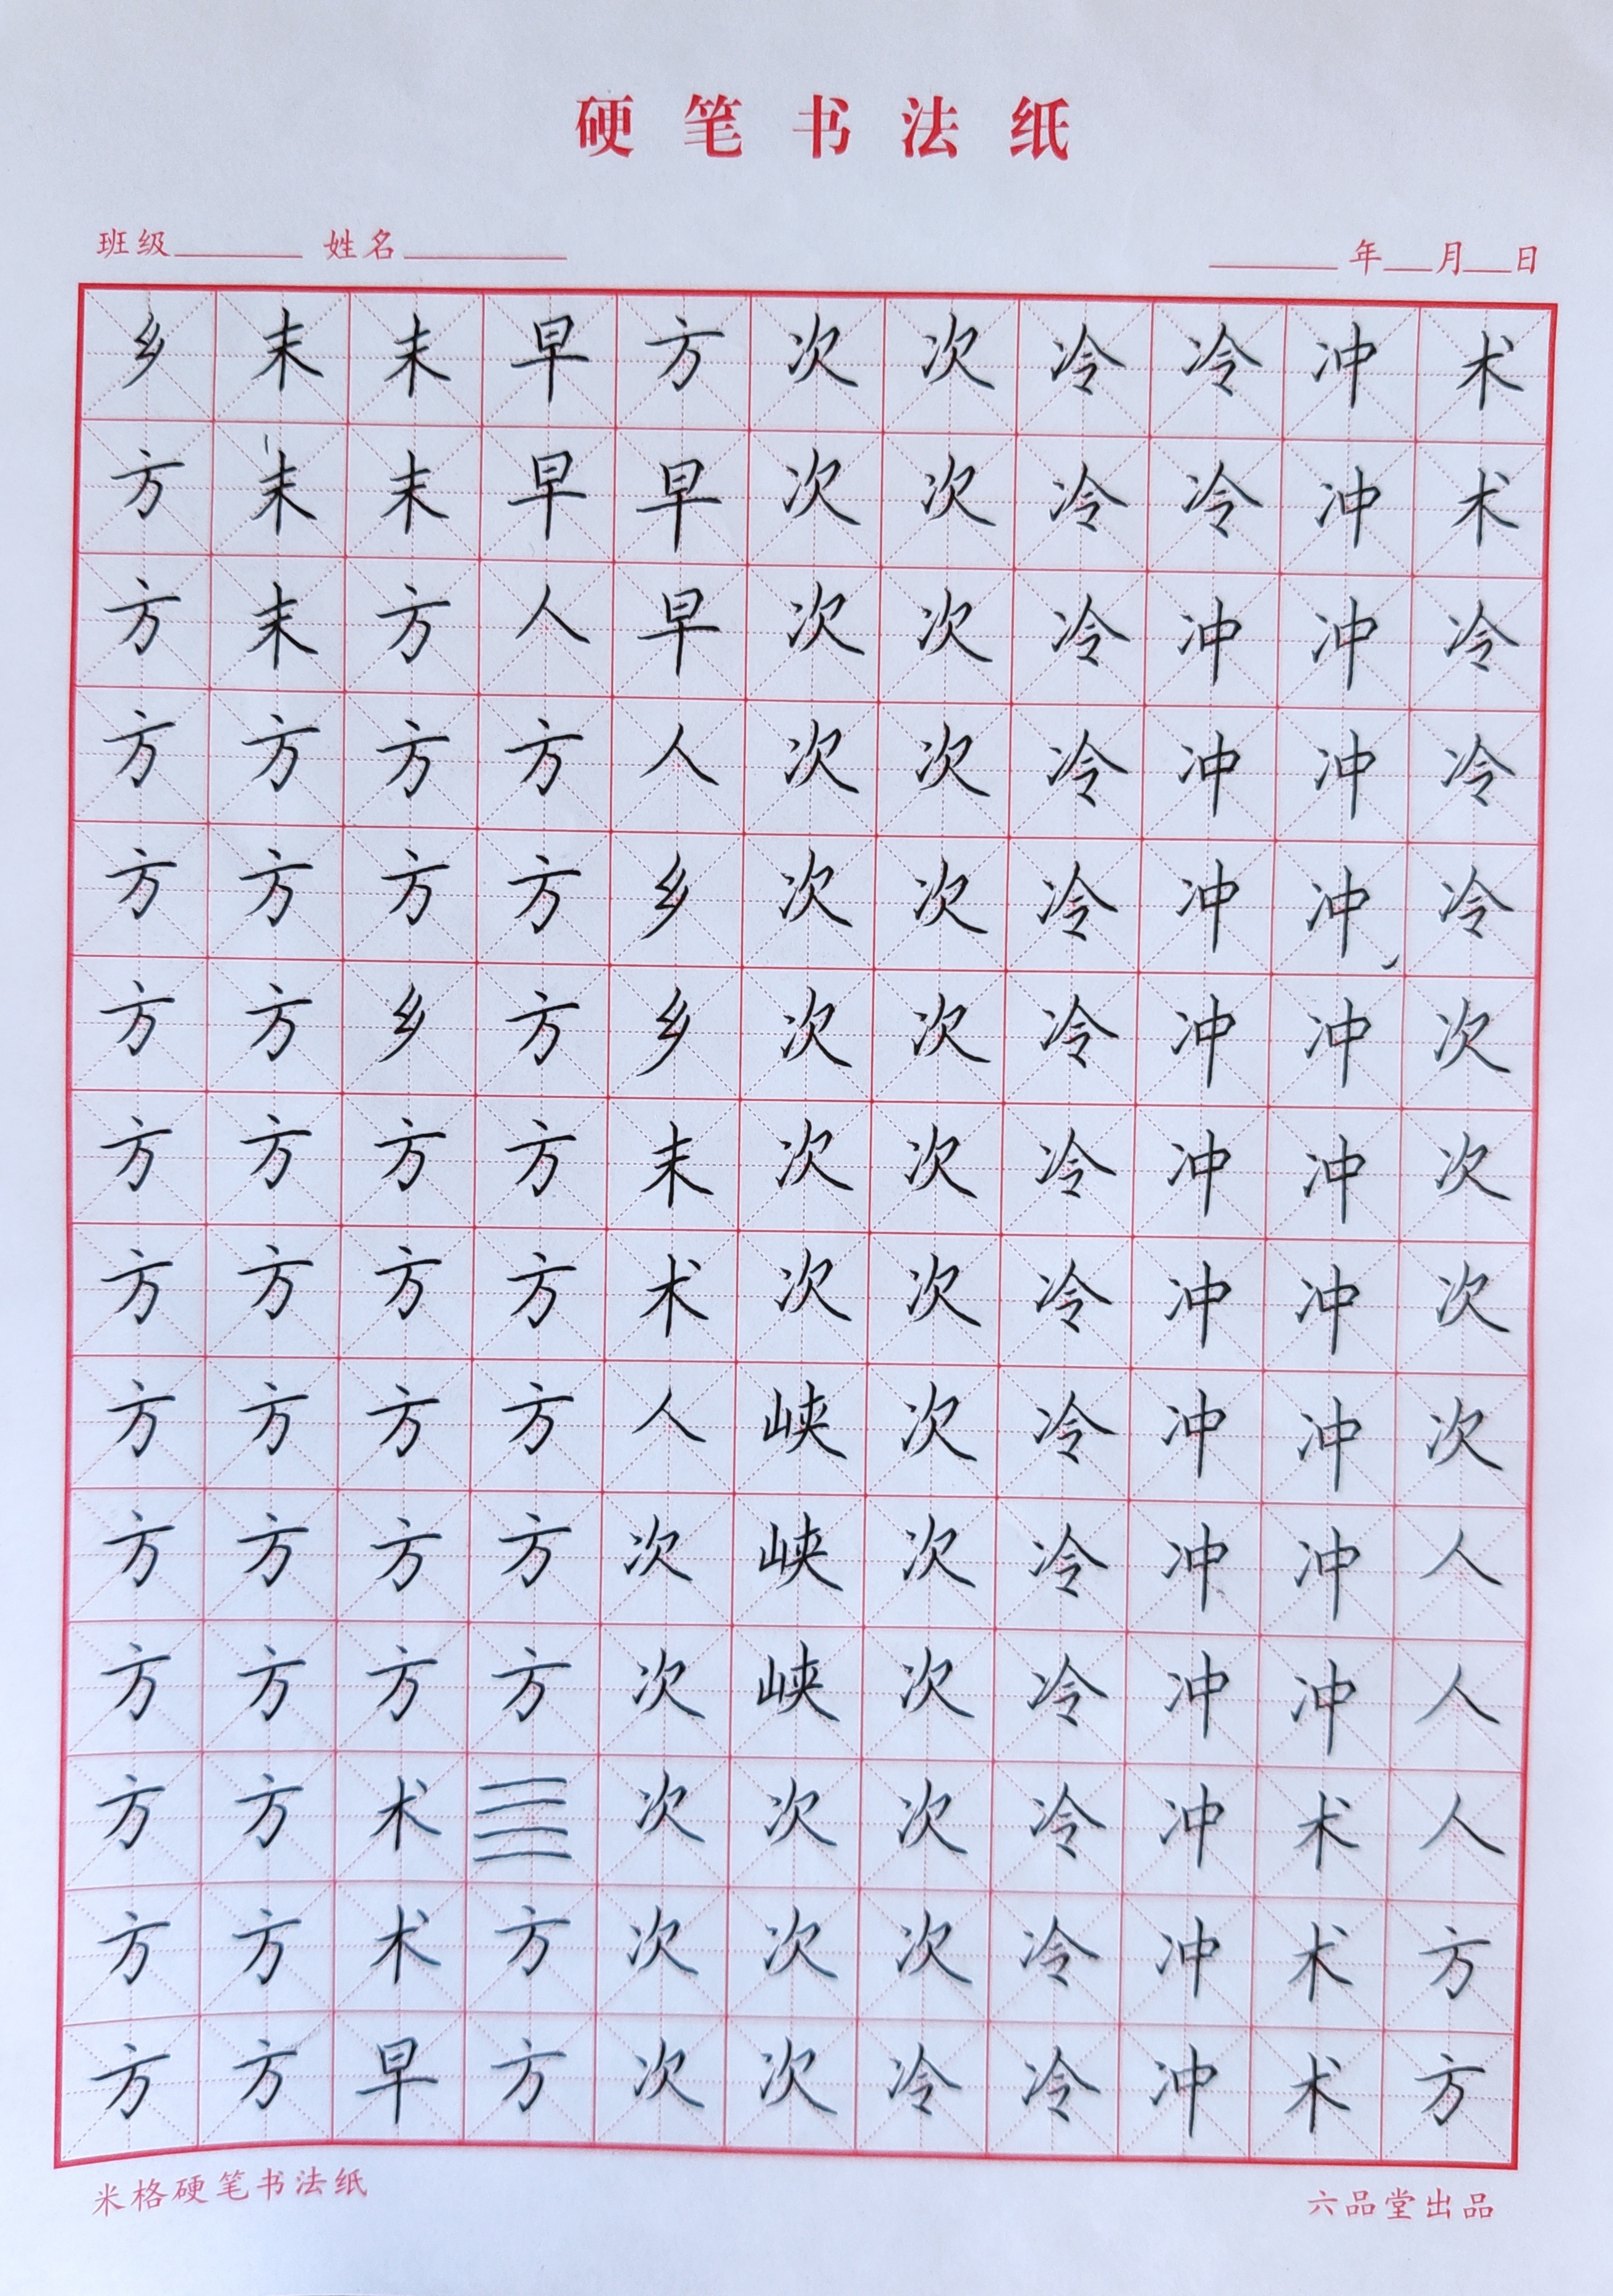 硬笔书法纸
班级 姓名 年 月 日
乡末末早方次次冷冷冲术
方末末早早次次冷冷冲术
方末方人早次次冷冲冲冷
方方方方人次次冷冲冲冷
方方方方乡次次冷冲冲冷
方方乡方乡次次冷冲冲次
方方方方末次次冷冲冲次
方方方方术次次冷冲冲次
方方方方人峡次冷冲冲次
方方方方次峡次冷冲冲人
方方方方次峡次冷冲冲人
方方术次次次冷冲术人
方方术方次次次冷冲术方
方方早方次次冷冷冲术方
米格硬笔书法纸 六品堂出品